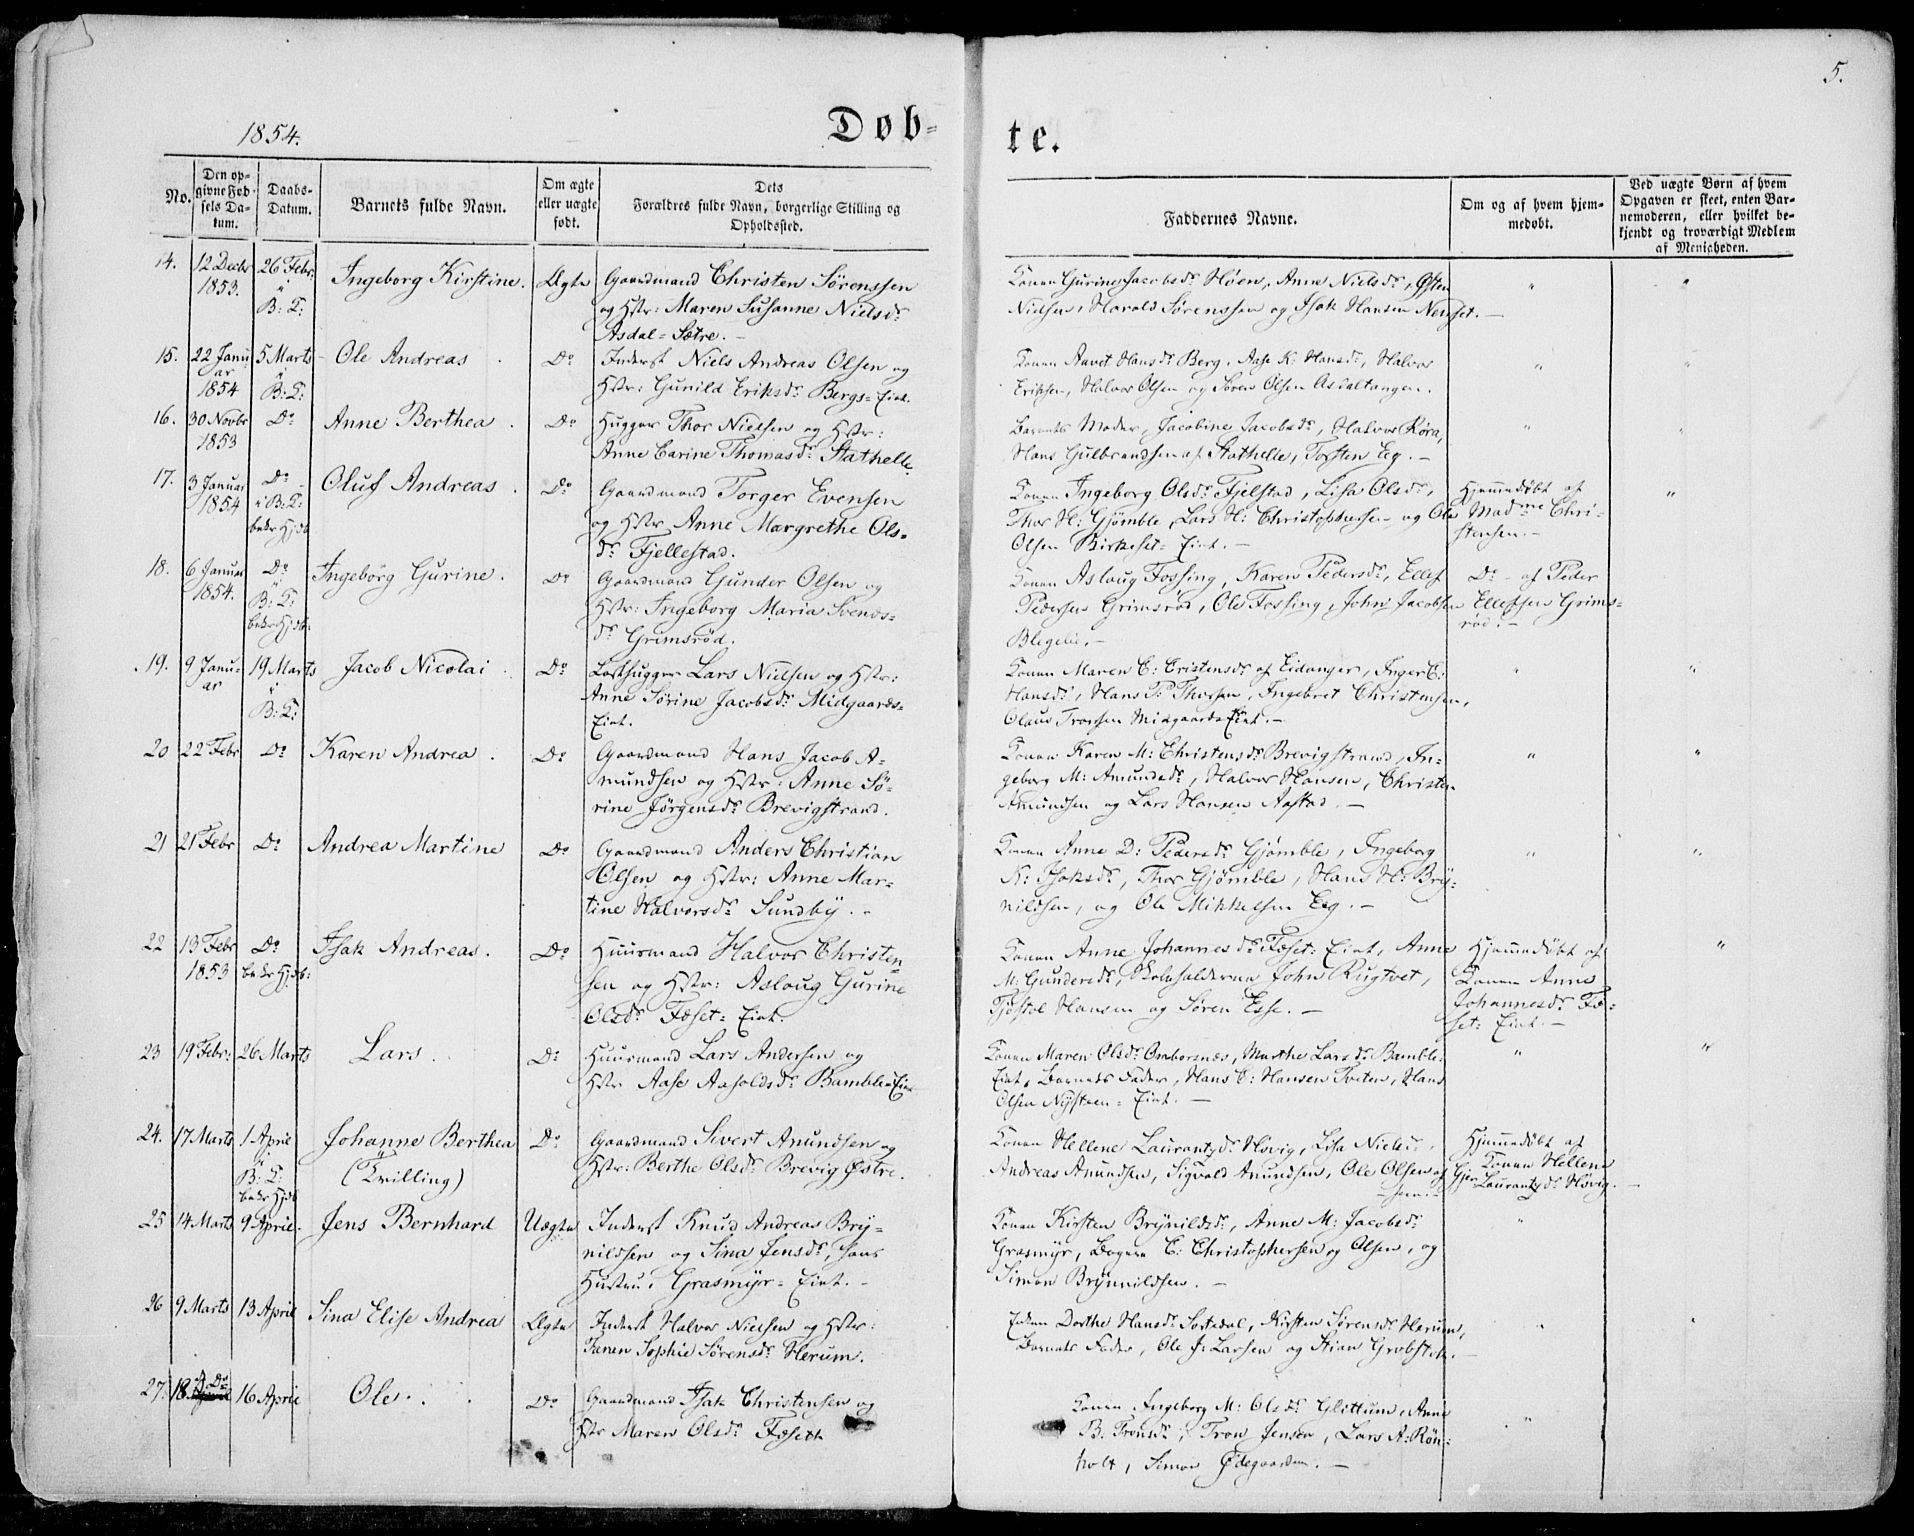 5.
1854.
Døb-
te.
No.
Den op-
givne Fød-
sels Da-
tum.
Daabs-
Datum.
Barnets fulde Navn.
Om ægte
eller uægte
født.
Dets
Forældres fulde Navn, borgerlige Stilling og
Opholdssted.
Faddernes Navne.
Om og af hvem hjem-
medøbt.
Ved uægte Børn af hvem
Opgaven er skeet, enten Bar-
nemoderen, eller hvilket be-
kjendt og troværdigt Medlem
af Menigheden.
14.
12 Decbr
1853.
26 Febr:
i
B: K:
Ingeborg Kirstine.
Ægte
Gaardmand Christen Sørenssen
og Hstr: Maren Susanne Nielsdr
Asdal-Sætre.
Konen Gurine Jacobsdr Høen, Anne Nielsdr,
Nielsen, Harald Sørenssen og Isak Hansen
15.
22 Janu
ar
1854
5 Marts
i
B: K:
Ole Andreas
Do
Inderst Niels Andreas Olsen og
Hstr: Gunild Eriksdr Bergs-Eiet.
Konen Hansdr Berg, Aase K: Hansdr, Halvor
Eriksen, Halvor Olsen og Søren Olsen Asdaltangen.
16.
30 Novbr
1853
Do
Anne Berthea
Do
Hugger Thor Nielsen og Hstr:
Anne Carine Thomasdr Stathelle
Barnets Moder, Jacobine Jacobsdr, Halvor Røra,
Hans Gulbrandsen af Stathelle, Torsten Eeg.
17.
3 Januar
1854
Do
i B: K:
bekr Hjdb
Oluf Andreas
Do
Gaardmand Torger Evensen
og Hstr Anne Margrethe Ols-
dr Fjellestad.
Konen Ingeborg Olsdr Fjelstad, Lisa Olsdr,
Thor H: Gjømble, Lars N: Christophersen og Ole
Olsen Birkeset-Eiet.
Hjemmedøbt af
Madme Chri-
stensen.
18.
6 Januar
1854.
Do
i
B: K:
bekr Hjdb.
Ingeborg Gurine.
Do
Gaardmand Gunder Olsen og
Hstr: Ingeborg Maria Svends-
dr Grimsrød.
Konen Aslaug Fossing, Karen Pedersdr, Ellef
Pedersen Grimsrød, Ole Fossing, John Jacobsen
Blegelie.
Do af Peder
Ellefsen Grims-
rød.
19.
9 Janu-
ar
19 Marts
i
B: K:
Jacob Nicolai
Do
Lasthugger Lars Nielsen og Hstr:
Anne Sørine Jacobsdr Midgaards-
Eiet.
Konen Maren C: Cristensdr af Eidanger, Inger E:
Hansdr, Hans P: Thorsen, Ingebret Christensen,
Olaus Tronsen Midgaards-Eiet.
20
22 Febr
Do
Karen Andrea
Do
Gaardmand Hans Jacob A-
mundsen og Hstr: Anne Sø-
rine Jørgensdr Brevigstrand.
Konen Karen M: Christensdr Brevigstrand, In-
geborg M: Amundsdr, Halvor Hansen, Christen
Amundsen og Lars Hansen Aafstad.
21
21 Febr
Do
Andrea Martine
Do
Gaardmand Anders Christian
Olsen og Hstr: Anne Mar-
tine Halvorsdr Sundby.
Konen Anne D: Pedersdr Gjømble, Ingeborg
K: Isaksdr, Thor Gjømble, Hans H: Bry-
nildsen, og Ole Mikkelsen Eeg.
22
13 Febr
1853
Do
bekr Hjdb:
Isak Andreas.
Do
Huusmand Halvor Christen-
sen og Hstr: Aslaug Gurine
Olsdr Fæset-Eiet.
Konen Anne Johannesdr Fæset-Eiet, Anne
M: Gundersdr, Skoleholderne John Rugtvet,
Tjøstol Hansen og Søren Esse.
Hjemmedøbt af
Konen Anne
Johannesdr Fæ-
set-Eiet.
23
19 Febr:
26 Marts
Lars
Do
Huusmand Lars Andersen og
Hstr Aase Aasoldsdr Bamble-Eiet
Konen Maren Olsdr Omborsnæs, Marthe Larsdr Bamble-
Eiet, Barnets Fader, Hans C: Hansen Tveten, Hans
Olsen Nysteen-Eiet.
24.
17 Marts
1 April
i
B: K:
bekr Hjdb
Johanne Berthea
(Tvilling)
Do
Gaardmand Sivert Anundsen og
Hstr: Berthe Olsdr Brevig Østre.
Konen Hellene Laurantsdr Hsvig, Lisa Nielsdr,
Andreas Anundsen, Sigvald Anundsen, Ole Olsen af Gjer
Hjemmedøbt af
Konen Hellene
Laurantsdr Hsvig.
25
14 Marts
9 April.
Jens Bernhard
Uægte
Inderst Knud Andreas Bry-
nildsen og Sina Jensdr, hans
Hustru, Grasmyr-Eiet.
Konen Kirsten Brynildsdr, Anne M: Jacobsdr
Grasmyr, C: Christophersen og Olsen, og
Simon Brynnildsen.
26
9 Marts
13 April
Sina Elise Andrea
Ægte
Inderst Halvor Nielsen og Hstr:
Taran Sophie Sørensdr Herum.
Enken Dorthe Hansdr Sortedal, Kirsten Sørensdr Herum,
Barnets Fader, Ole J: Larsen og Stian Grobstok.
27.
18 Do
16 April
Ole
Do
Gaardmand Isak Christensen og
Hstr Maren Olsdr Fæseth
Konen Ingeborg M: Olsdr Glittum, Anne
B. Tronsdr, Tron Jensen, Lars A: Røn-
holt, Simon Ødegaarden.